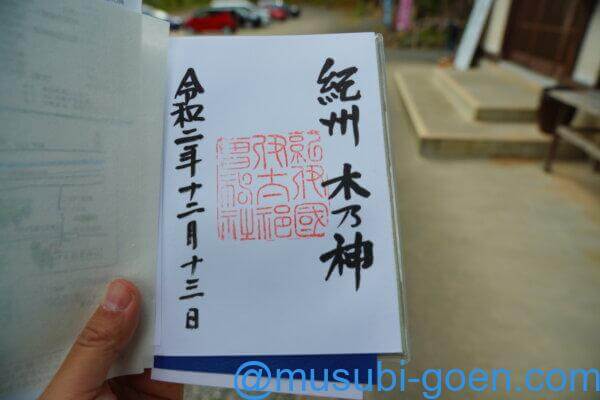 紀州 木乃神
紀伊國
伊太祁
曽神社
令和二年十二月十三日
@musubi-goen.com